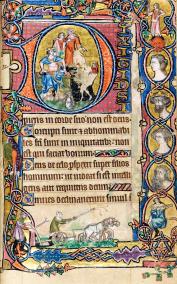 DIXIT INSI
piens in corde suo non est deus
Corrupti sunt & abhominabi
les facti sunt in iniquitatib; non
est qui faciat bonum
Deus de celo prospexit super filios
hominum ut videat si est intelli
gens aut requirens deum
Omnes declinauerunt simul i